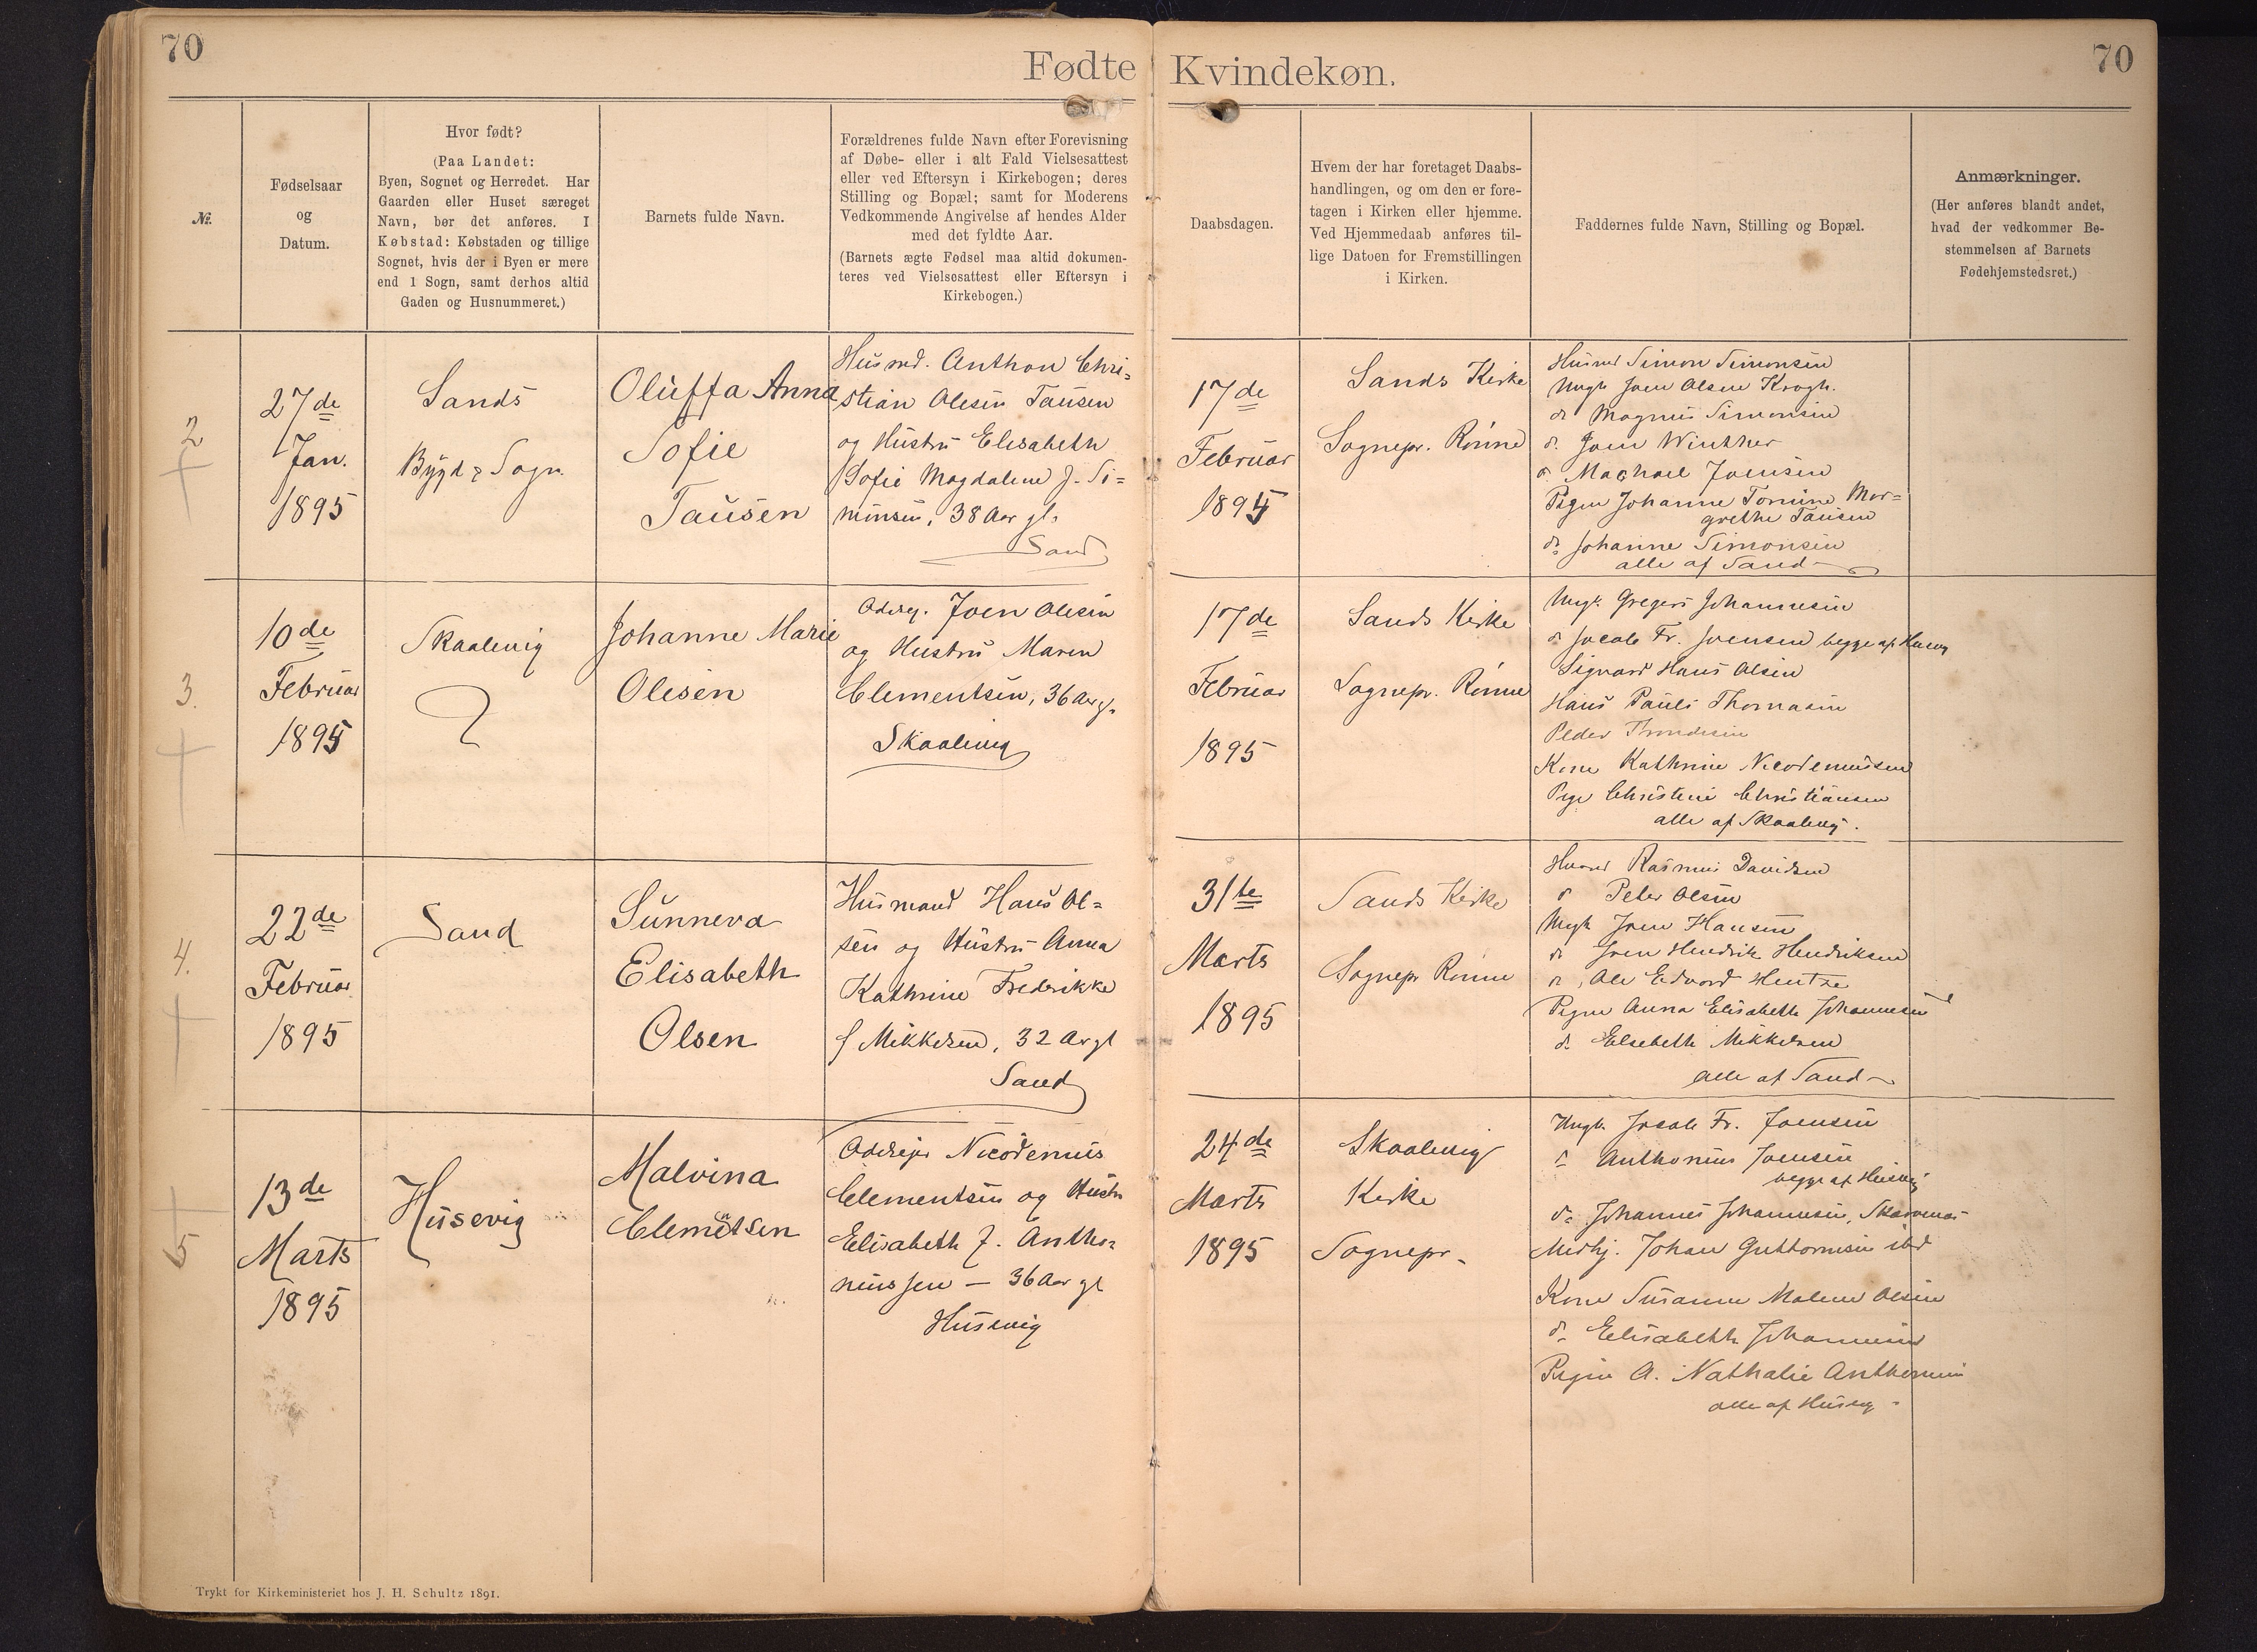 70
Fødte
Kvindekøn.
70
№.
Fødselsaar
og
Datum.
Hvor født?
(Paa Landet:
Byen, Sognet og Herredet. Har
Gaarden eller Huset særeget
Navn, bør det anføres. I
Købstad: Købstaden og tillige
Sognet, hvis der i Byen er mere
end 1 Sogn, samt derhos altid
Gaden og Husnummeret.)
Barnets fulde Navn.
Forældrenes fulde Navn efter Forevisning
af Døbe- eller i alt Fald Vielsesattest
eller ved Eftersyn i Kirkebogen; deres
Stilling og Bopæl; samt for Moderens
Vedkommende Angivelse af hendes Alder
med det fyldte Aar.
(Barnets ægte Fødsel maa altid dokumen-
teres ved Vielsesattest eller Eftersyn i
Kirkebogen.)
Daabsdagen.
Hvem der har foretaget Daabs-
handlingen, og om den er fore-
tagen i Kirken eller hjemme.
Ved Hjemmedaab anføres til-
lige Datoen for Fremstillingen
i Kirken.
Faddernes fulde Navn, Stilling og Bopæl.
Anmærkninger.
(Her anføres blandt andet,
hvad der vedkommer Be-
stemmelsen af Barnets
Fødehjemstedsret.)
2
27de
Jan.
1895
Sands
Bygd & Sogn
Oluffa Anna
Sofie
Tausen
Husmd. Anthon Chri=
stian Olesen Tausen
og Hustru Elisabeth
Sofie Magdalene f. Si=
monsen, 38 Aar gl.
Sand
17de
Februar
1895
Sands Kirke
Sognepr. Rønne
Husmd Simon Simonsen
Ungk Joen Olsen Krogh.
do Magnus Simonsen
do. Joen Winther
do. Machael Joensen
Pigen Johanne Tomine Mar=
grethe Tausen
do Johanne Simonsen
alle af Sand
3.
10de
Februar
1895
Skaalevig
Johanne Marie
Olesen
Odelsej. Joen Olesen
og Hustru Maren
Clementsen, 36 Aar gl.
Skaalevig
17de
Februar
1895
Sands Kirke
Sognepr. Rønne
Ungk. Gregers Johannesen
do Jacob Fr. Joensen begge af Husevig
Sigvard Hans Olsen
Hans Pauli Thomasen
Peder Trondesen
Kone Kathrine Nicodemussen
Pige Christine Christiansen
alle af Skaalevig.
4.
22de
Februar
1895
Sand
Sunneva
Elisabeth
Olsen
Husmand Hans Ol=
sen og Hustru Anna
Kathrine Frederikke
f Mikkelsen, 32 Aar gl
Sand
31te
Marts
1895
Sands Kirke
Sognepr Rønne
Husmd Rasmus Davidsen
do Peter Olsen
Ungk Joen Hansen
do Joen Hendrik Hendriksen
do, Ole Edvard Hentze
Pigen Anna Elisabeth Johannesen
do Elsebeth Mikkelsen
alle af Sand
5
13de
Marts
1895
Husevig
Malvina
Clemetsen
n
Odelsejer Nicodemus
Clementsen og Hustru
Elisabeth f. Antho=
niussen — 36 Aar gl
Husevig
24de
Marts
1895
Skaalevig
Kirke
Sognepr.
Ungk. Jacob Fr. Joensen
do Anthonius Joensen
begge af Husevig
do Johannes Johannesen, Skarvenæs
Medhj. Johan Guttormsen ibd
Kone Susanne Malene Olsen
do Elisabeth Johannesen
Pigen A. Nathalie Anthoniussen
alle af Husevig
Trykt for Kirkeministeriet hos J. H. Schultz 1891.